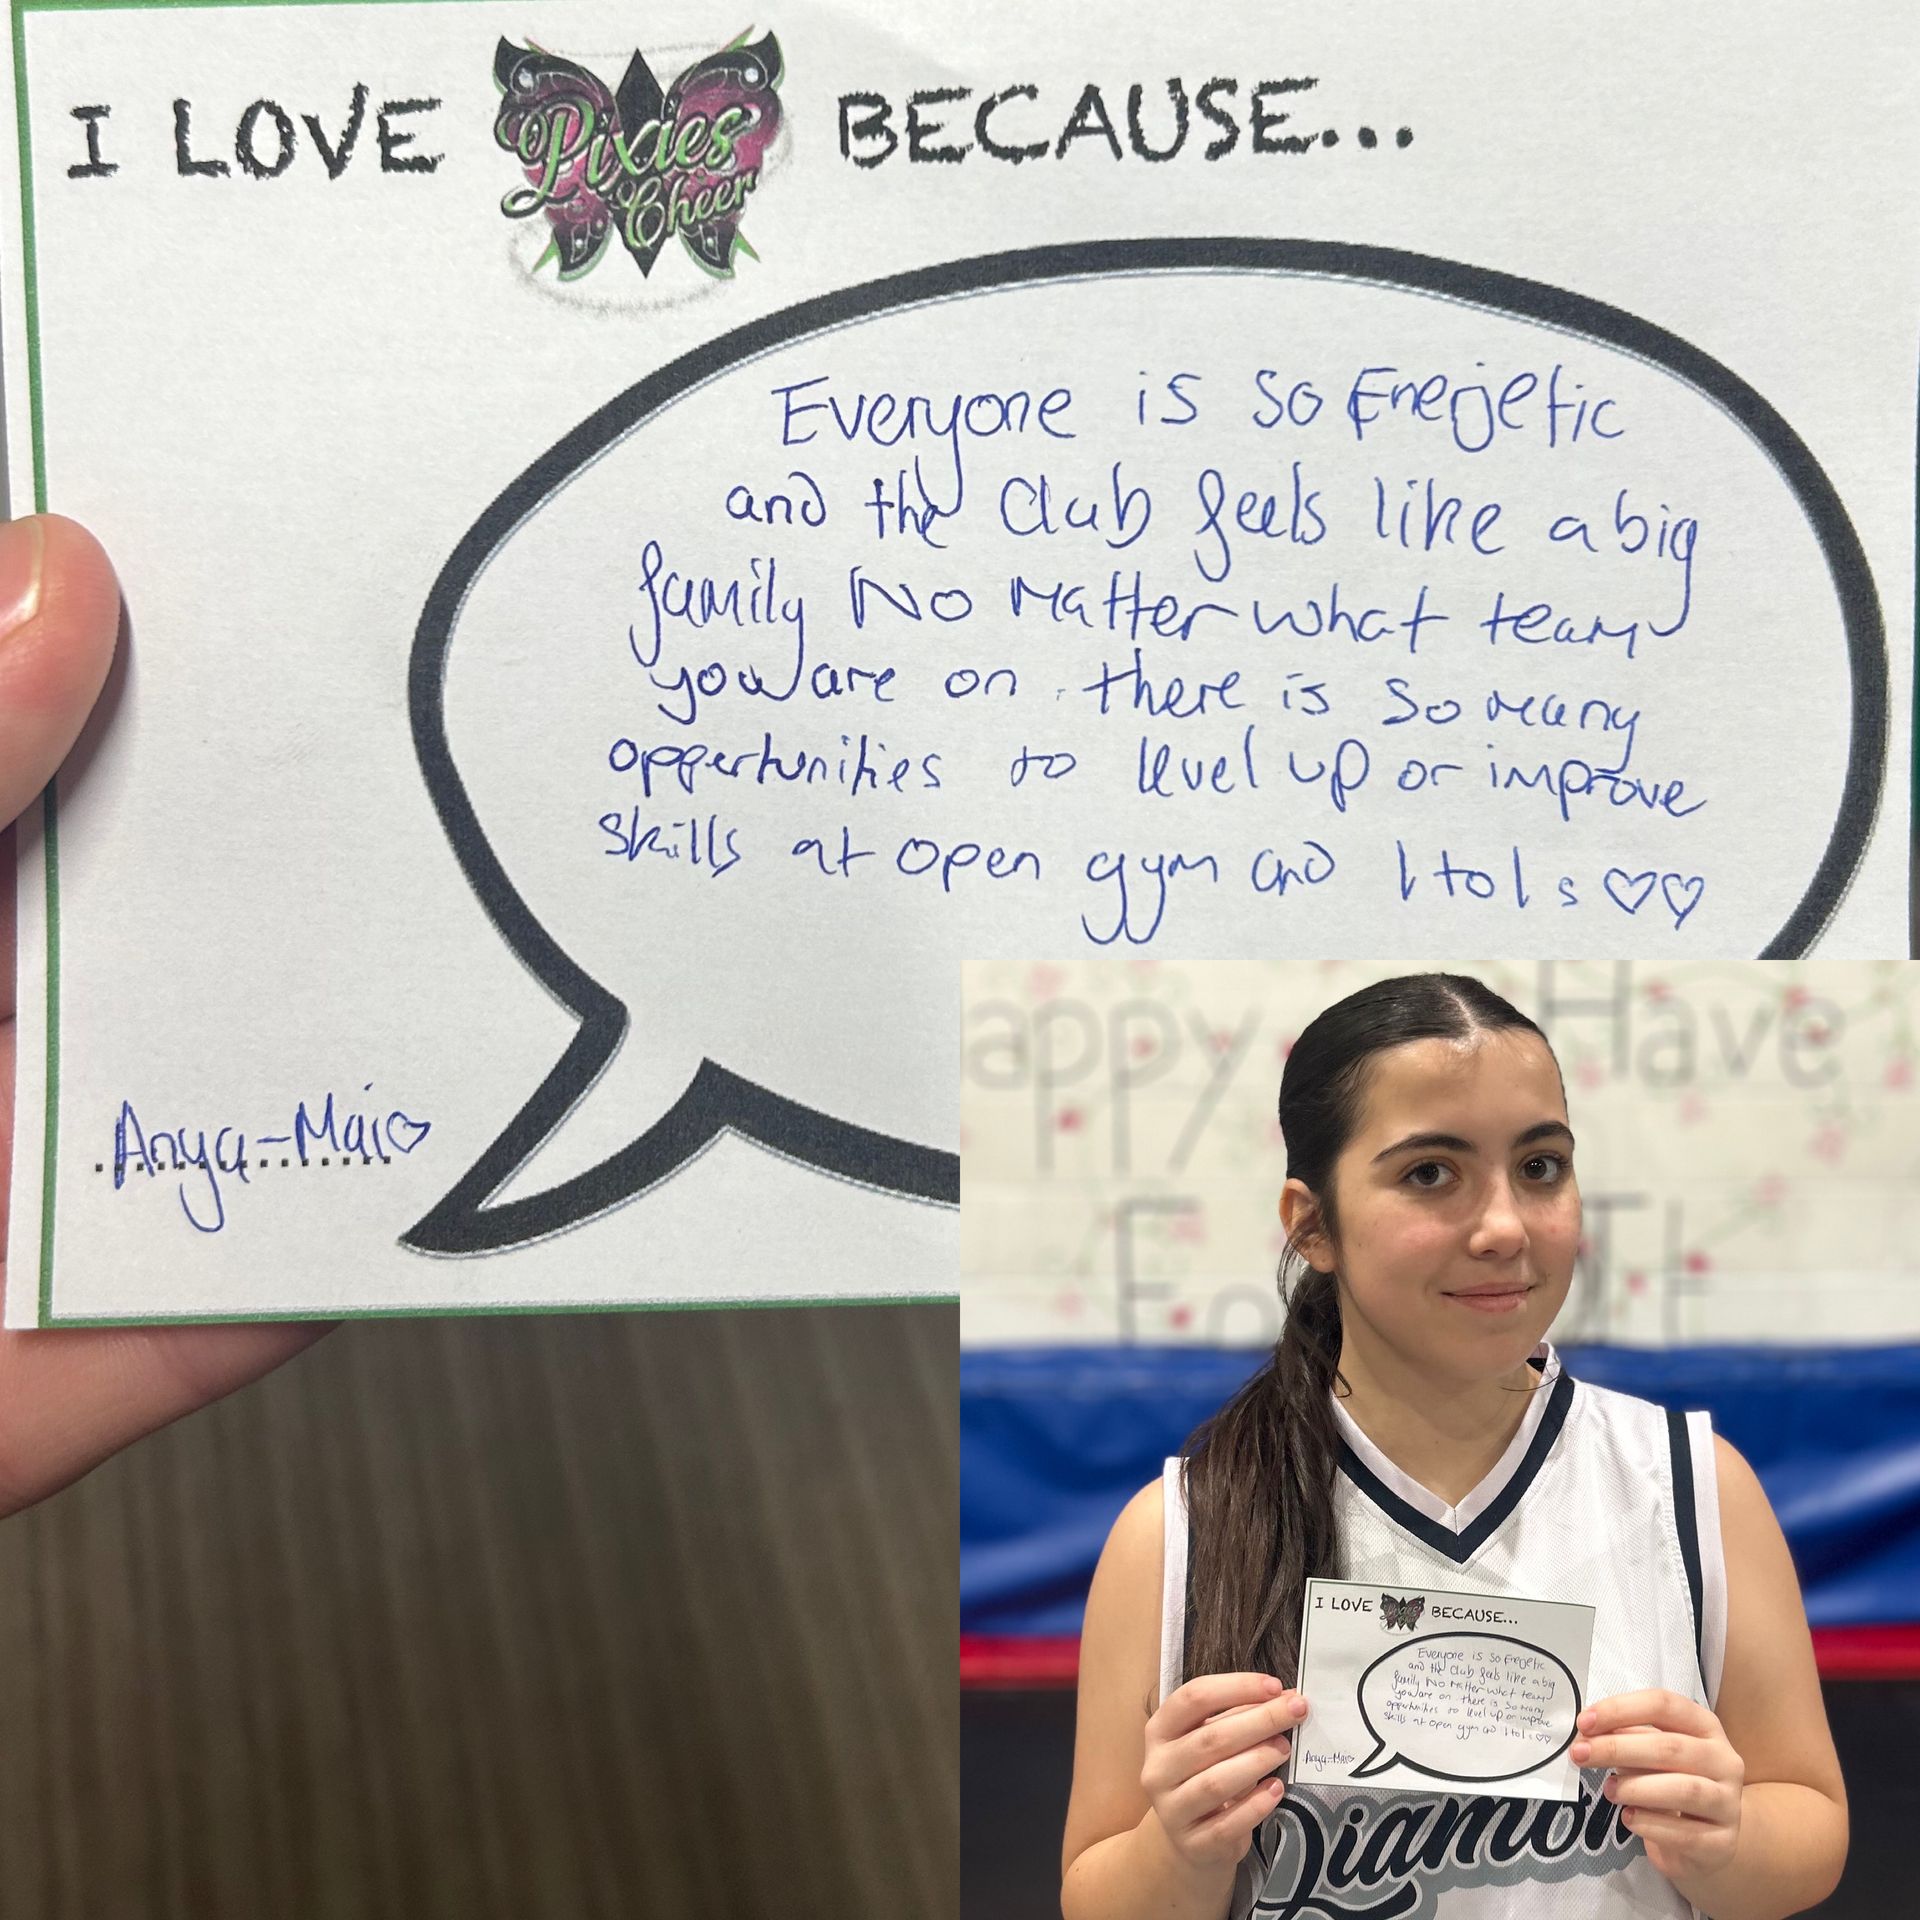 I LOVE Pixies Cheer BECAUSE...
Everyone is so Enerjetic
and the Club feels like a big
family No Matter what team
you are on. there is so many
oppertunities to level up or improve
skills at open gym and 1 to 1s ♡♡
Anya-Mai♡
appy Have
Fo It
I LOVE Pixies Cheer BECAUSE...
Everyone is so Enerjetic
and the Club feels like a big
family No Matter what team
you are on there is so many
oppertunities to level up or improve
skills at open gym and 1 to 1s ♡♡
Anya-Mai♡
Diamon